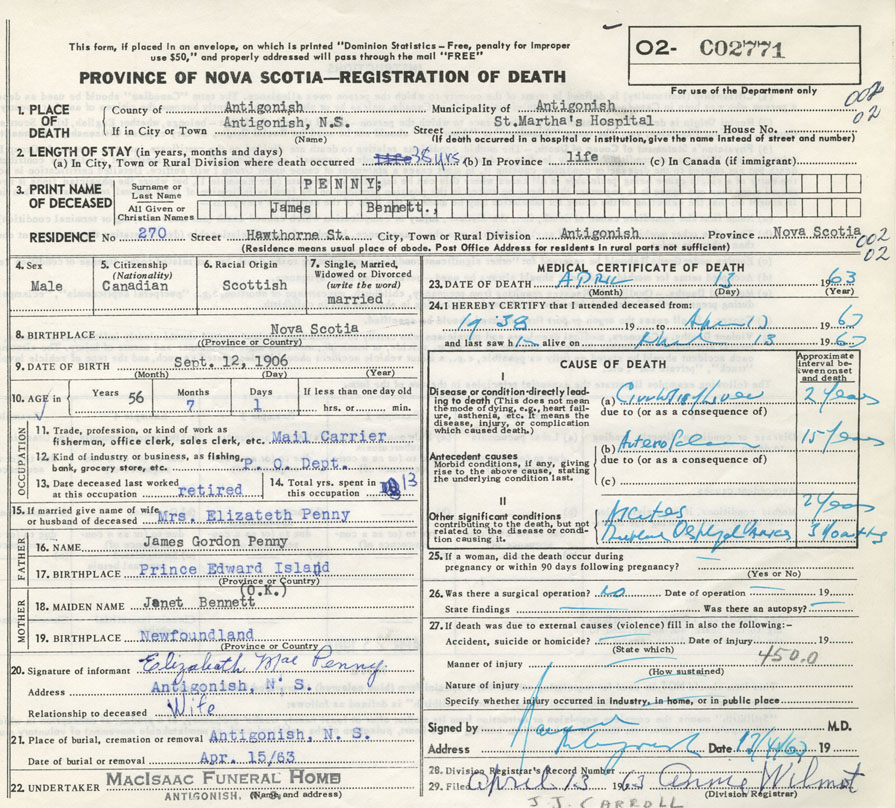 This form, if placed in an envelope, on which is printed "Dominion Statistics – Free, penalty for improper
use $50," and properly addressed will pass through the mail "FREE"
PROVINCE OF NOVA SCOTIA—REGISTRATION OF DEATH
O2- C02771
For use of the Department only
002
02
1. PLACE OF DEATH
County of Antigonish Municipality of Antigonish
If in City or Town Antigonish, N.S. Street St.Martha's Hospital House No.
(Name) (If death occurred in a hospital or institution, give the name instead of street and number)
2. LENGTH OF STAY (in years, months and days)
(a) In City, Town or Rural Division where death occurred 38 yrs (b) In Province life (c) In Canada (if immigrant)
3. PRINT NAME OF DECEASED
Surname or Last Name PENNY;
All Given or Christian Names James Bennett.,
RESIDENCE No 270 Street Hawthorne St. City, Town or Rural Division Antigonish Province Nova Scotia
(Residence means usual place of abode. Post Office Address for residents in rural parts not sufficient)
002
02
4. Sex Male
5. Citizenship (Nationality) Canadian
6. Racial Origin Scottish
7. Single, Married, Widowed or Divorced (write the word) married
8. BIRTHPLACE Nova Scotia
(Province or Country)
9. DATE OF BIRTH Sept. 12, 1906
(Month) (Day) (Year)
10. AGE in Years 56 Months 7 Days 1 If less than one day old
hrs. or min.
OCCUPATION
11. Trade, profession, or kind of work as
fisherman, office clerk, sales clerk, etc. Mail Carrier
12. Kind of industry or business, as fishing,
bank, grocery store, etc. P. O. Dept.
13. Date deceased last worked
at this occupation retired
14. Total yrs. spent in
this occupation 13
15. If married give name of wife
or husband of deceased Mrs. Elizateth Penny
FATHER
16. NAME James Gordon Penny
17. BIRTHPLACE Prince Edward Island
(Province or Country)
(O.K.)
MOTHER
18. MAIDEN NAME Janet Bennett
19. BIRTHPLACE Newfoundland
(Province or Country
20. Signature of informant Elizabeth Mae Penny
Address Antigonish, N. S.
Relationship to deceased Wife
21. Place of burial, cremation or removal Antigonish, N. S.
Date of burial or removal Apr. 15/63
22. UNDERTAKER MACISAAC FUNERAL HOME
ANTIGONISH,
(Name and address)
MEDICAL CERTIFICATE OF DEATH
23. DATE OF DEATH APRIL 13 1963
(Month) (Day) (Year)
24. I HEREBY CERTIFY that I attended deceased from:
1938 19 to April 13 1963
and last saw him alive on April 13 1963
CAUSE OF DEATH
Approximate interval between onset and death
I
Disease or condition directly leading to death (This does not mean the mode of dying, e.g., heart failure, asthenia, etc. It means the disease, injury, or complication which caused death.)
(a) 2 years
due to (or as a consequence of)
Antecedent causes
Morbid conditions, if any, giving rise to the above cause, stating the underlying condition last.
(b) 15 years
due to (or as a consequence of)
(c)
II
Other significant conditions
contributing to the death, but not related to the disease or condition causing it.
Ascites 2 years
3 months
25. If a woman, did the death occur during
pregnancy or within 90 days following pregnancy?
(Yes or No)
26. Was there a surgical operation? no Date of operation 19
State findings Was there an autopsy?
27. If death was due to external causes (violence) fill in also the following:–
Accident, suicide or homicide? Date of injury 19
(State which)
450.0
Manner of injury
(How sustained)
Nature of injury
Specify whether injury occurred in Industry, in home, or in public place
Signed by M.D.
Address Antigonish Date 19
28. Division Registrar's Record Number
29. Filed April 13 1963 Annie Wilmot
(Division Registrar)
J. J. CARROLL